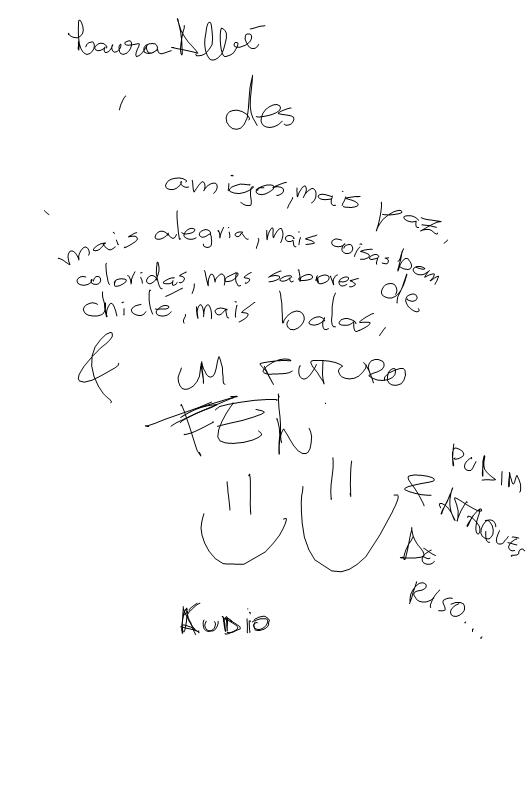 Laura Allbé
des
amigos, mais paz,
mais alegria, mais coisas bem
coloridas, mas sabores de
chiclé, mais balas,
& UM FUTURO
FEh
& PUDIM
ATAQUES
DE
RISO...
AUDIO